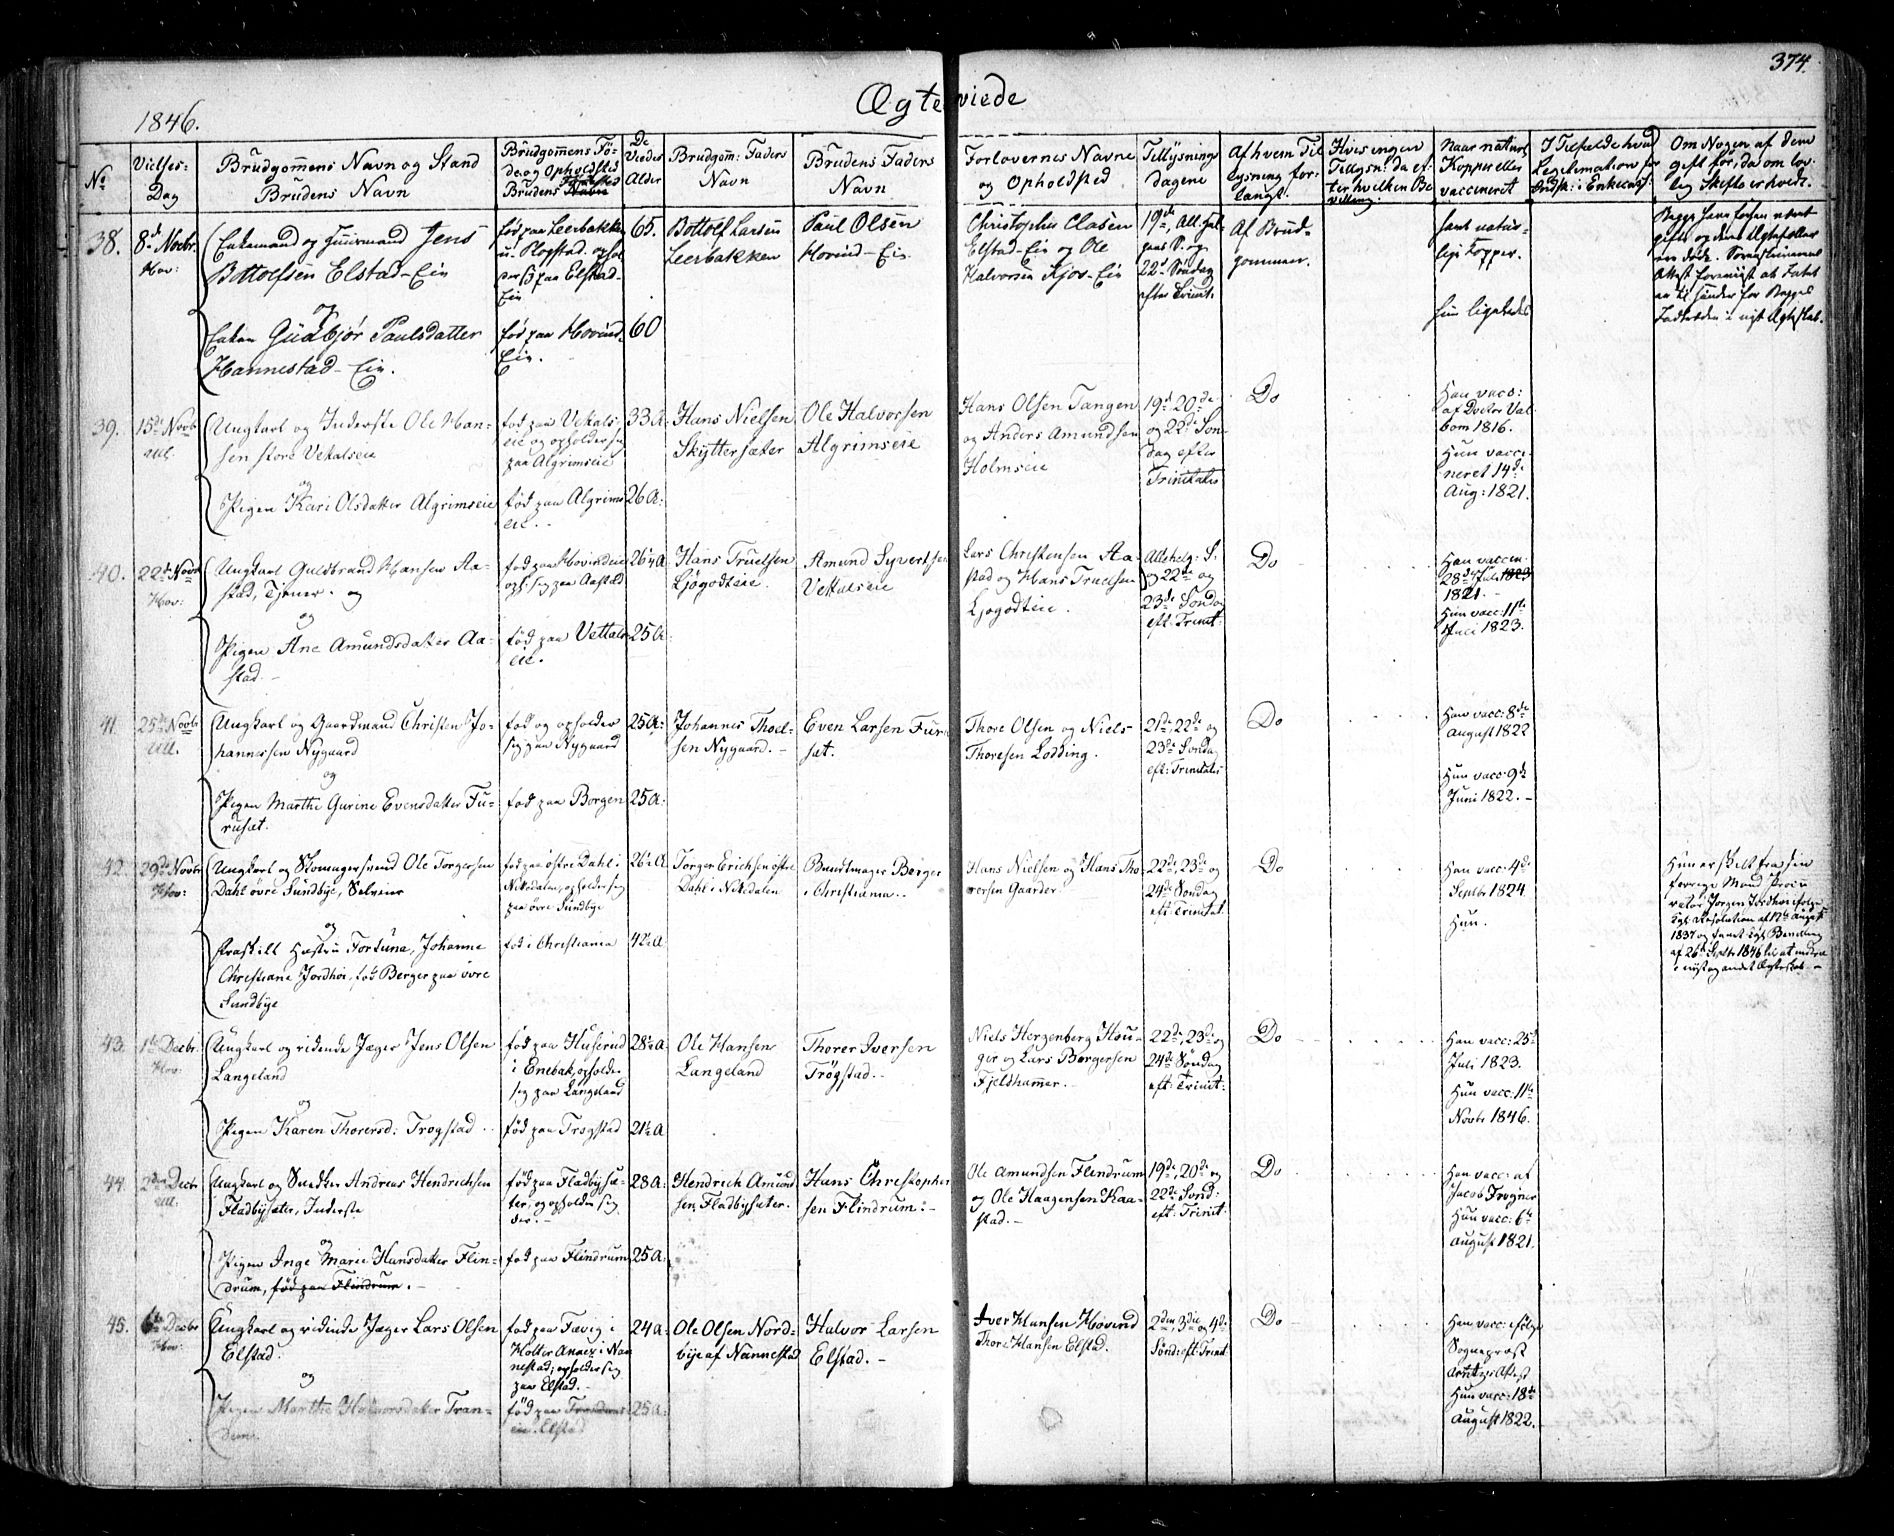 374.
Ægteviede
1846.
No
Vielses-
Dag
Brudgommens Navn og Stand
Brudens Navn
Brudgomens Fö-
de og Opholdsted
Brudens Fødested
De
Viedes
Alder
Brudgom: Faders
Navn
Brudens Faders
Navn
Forlovernes Navne
og Opholdsted
Tillysnings
dagene
Af hvem Til
lysning for-
langt.
Hvis ingen
Tillysn: da ef-
ter hvilken Be
villing.
Naar naturl
Kopper eller
vaccineret
I Tilfælde hvad
Legitimation for
Om Nogen af dem
gift før, da om lov-
lig Skifte erholdt.
38.
8de Novbr.
Hov:
Enkemand og Huusmand Jens
Bottolfsen Elstad-Eie
og
Enken Gudbjør Paulsdatter
Hannestad-Eie.
fød paa Leerbakken
u. Rogstad. ophol
der sig paa Elstad-
Eie
fød paa Hovind
Eie.
65.
60
Bottolf Larsen
Leerbakken
Paul Olsen
Hovind-Eie.
Christopher Clasen
Elstad-Eie og Ole
Halvorsen Kjos-Eie
19de, All. Hel-
gens S. og
22d Søndag
efter Trinit:
Af Brud-
gommen.
havt natur-
lige Kopper.
hun ligeledes
Begge have forhen været
gifte og deres Ægtefæller
ere døde.
39.
15de Novb
Ull.
Ungkarl og Inderste Ole Han-
sen store Vekalseie
og
Pigen Kari Olsdatter Algrimseie
fød paa Vekals
eie og opholder sig
paa Algrimseie
fød paa Algrims
eie.
33 A:
26 A:
Hans Nielsen
Skyttersæter
Ole Halvorsen
Algrimseie
Hans Olsen Tangen
og Anders Amundsen
Holmseie
19d 20de
og 22de Søn
dag efter
Trinitatis
Do
Han vacc:
af Doctor Val
bom 1816.
Hun vacci-
neret 14de
Aug: 1821.
40.
22de Novb
Hov:
Ungkarl Guldbrand Hansen Aa-
stad, Tjener. og
og
Pigen Ane Amundsdatter Aa-
stad.
fød paa Hovindeie
oph: sig paa Aastad
fød paa Vettals
eie.
26¼ A
25 A:
Hans Truelsen
Ljøgodteie.
Amund Syvertsen
Vettalseie
Lars Christensen Aa-
stad og Hans Truelsen
Ljøgodteie.
Allehelg: S.
og 22de og
23de Søndag
eft: Trinit:
Do
Han vaccin:
28de Juli 1823
1821.
Hun vacc: 11te
Juli 1823.
41.
25de Novbr
Ull.
Ungkarl og Gaardmand Christen Jo-
hannessen Nygaard
og
Pigen Marthe Gurine Evensdatter Fu-
rusæt.
fød og opholder
sig paa Nygaard
fød paa Borgen
25 A:
25 A:
Johannes Thoel-
sen Nygaard.
Even Larsen Furu
sæt.
Thore Olsen og Niels
Thoresen Lødding.
21de, 22de og
23de Søndag
eft: Trinitatis
Do
Han vacc: 8de
August 1822
Hun vacc: 9de
Juni 1822.
42.
29de Novbr
Hov:
Ungkarl og Skomagersvend Ole Torgersen
Dahl øvre Sundbye, Selveier
og
Fraskilt Hustru Fortuna, Johanne
Christiane Jordhøi, fød Berger paa øvre
Sundbye
fød paa østre Dahl i
Nitedalen, opholder sig
paa øvre Sundbye
fød i Christiania
26½ A
42½ A
Torger Erichsen østre
Dahl i Nitedalen
Bundtmager Berger
i Christiania.
Hans Nielsen og Hans Tho-
resen Gaarder.
22de, 23de og
24de Søndag
eft: Trinitat.
Do
Han vacc: 4de
Septbr 1824
Hun.
Hun er skilt fra sin
forrige Mand Procu
rator Jørgen Jordhøi ifølge
Kgl: Resolution af 17de August
1837 og havt Kgl: Bevilling
af 26de Septbr 1846 til at indtræde
i nyt og andet Ægteskab.
43.
1ste Decbr
Hov:
Ungkarl og ridende Jæger Jens Olsen
Langeland
og
Pigen Karen Thorersd: Trøgstad
fød paa Huserud
i Enebak, opholder
sig paa Langeland
fød paa Trøgstad
28½ A:
21½ A
Ole Hansen
Langeland
Thorer Iversen
Trøgstad.
Niels Herzenberg Hou-
ger og Lars Borgersen
Fjeldhammer.
22de, 23de og
24de Søndag
eft: Trinit:
Do
Han vacc: 25de
Juli 1823.
Hun vacc: 11te
Novbr 1846.
44.
2den Decbr
Ull.
Ungkarl og Snedker Andreas Hendrichsen
Fladbysæter, Inderste
og
Pigen Inge Marie Hansdatter Flin-
drum, fød paa Flindrum.
fød paa Fladbysæ-
ter, og opholder sig
der.
fød paa Flindrum
28 A:
25 A:
Hendrich Amund
sen Fladbysæter.
Hans Christopher
sen Flindrum:
Ole Amundsen Flindrum
og Ole Haagensen Kaa-
stad.
19de, 20de og
22de Sønd:
eft: Trinit:
Do
Han vacc: af
Jacob Frogner
Hun vacc: 6te
August 1821.
45.
6te Decbr
Hov:
Ungkarl og ridende Jæger Lars Olsen
Elstad.
og
Pigen Marthe Halvorsdatter Tran-
dum.
fød paa Fævig i
Holter Annex i Nan
nestad; opholder sig
paa Elstad.
fød paa Trandums
eie. Elstad
24 A:
25 A:
Ole Olsen Nord-
bye af Nannestad
Halvor Larsen
Elstad.
Iver Hansen Hovind
Thore Hansen Elstad.
2den, 3die og 4de
Sønd: eft: Trinit
Do
Han vacc: ifølge
Sogneprest
Arntz's Attest
Hun vacc: 18de
August 1822.